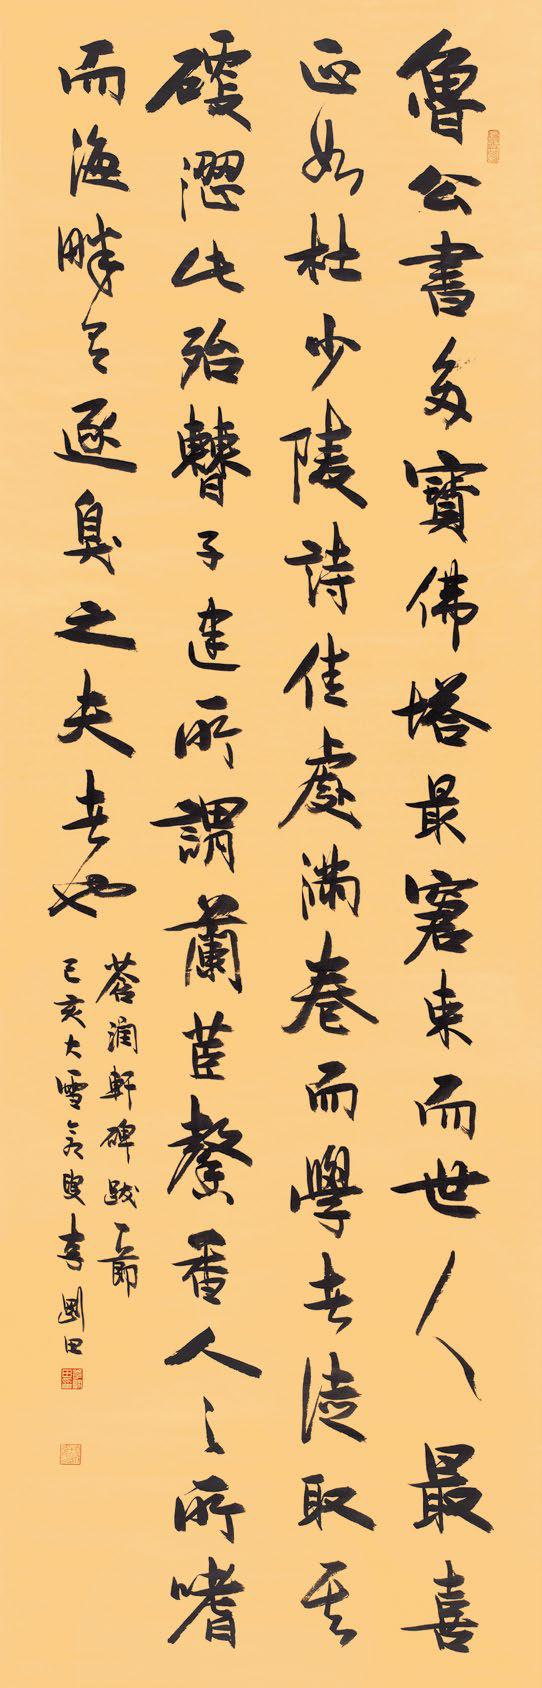 魯公書多寶佛塔最窘束而世人最喜
正如杜少陵詩佳處滿卷而學者徒取其
澀此殆子建所謂蘭茝馨香人之所嗜
而海畔有逐臭之夫者也
蒼潤軒碑跋一節
己亥大雪叟李剛田